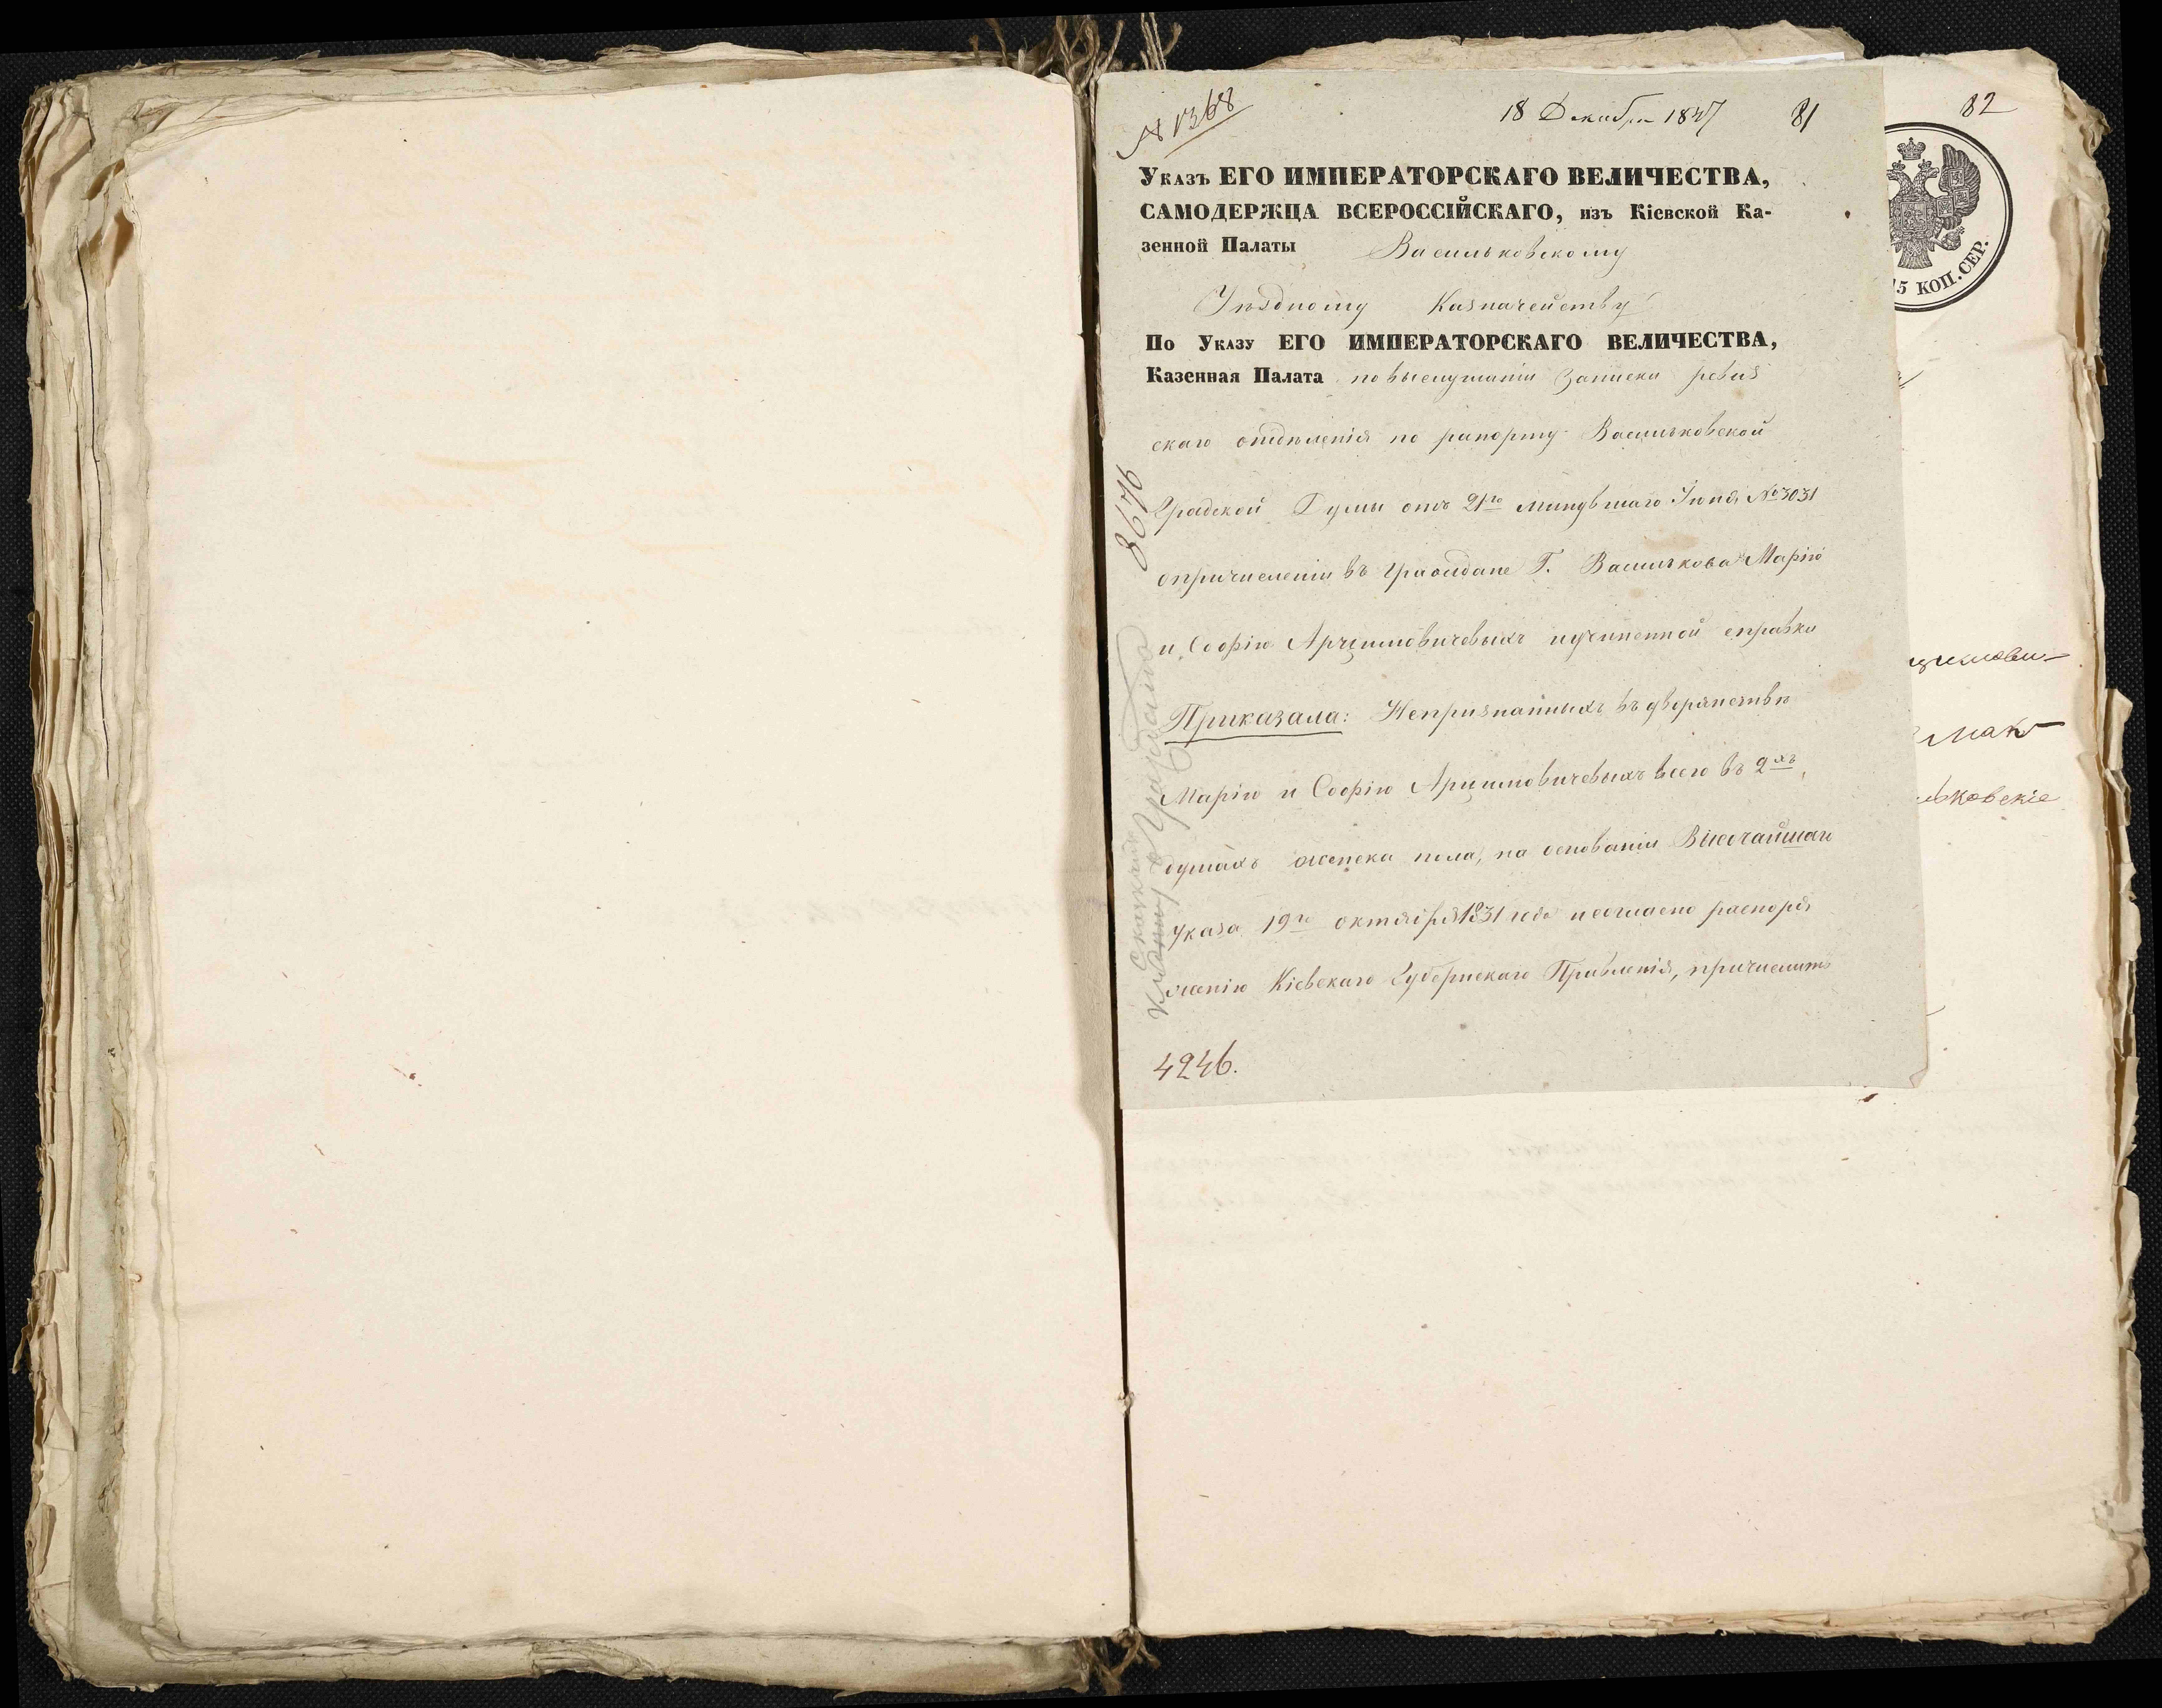 № 1368
18 Декабря 1847
81
82
Указъ ЕГО ИМПЕРАТОРСКАГО ВЕЛИЧЕСТВА,
САМОДЕРЖЦА ВСЕРОССІЙСКАГО, изъ Кіевской Ка-
зенной Палаты Васильковскому
Уѣздному Казначейству
По Указу ЕГО ИМПЕРАТОРСКАГО ВЕЛИЧЕСТВА,
Казенная Палата по выслушаніи записки ревиз
скаго отдѣленія по рапорту Васильковской
Градской Думы отъ 21го минувшаго Іюня № 3031
о причисленіи въ граждане Г. Василькова Марію
и Софію Арцимовичевыхъ и учиненной справки
Приказала: Непризнанныхъ въ дворянствѣ
Марію и Софію Арцимовичевыхъ всего въ 2хъ
душахъ женска пола, на основаніи Высочайшаго
указа 19го октября 1831 года и согласно распоря
женію Кіевскаго Губернскаго Правленія, причислить
4246.
3676
15 КОП. СЕР.
цимови-
Мак
ьковскіе